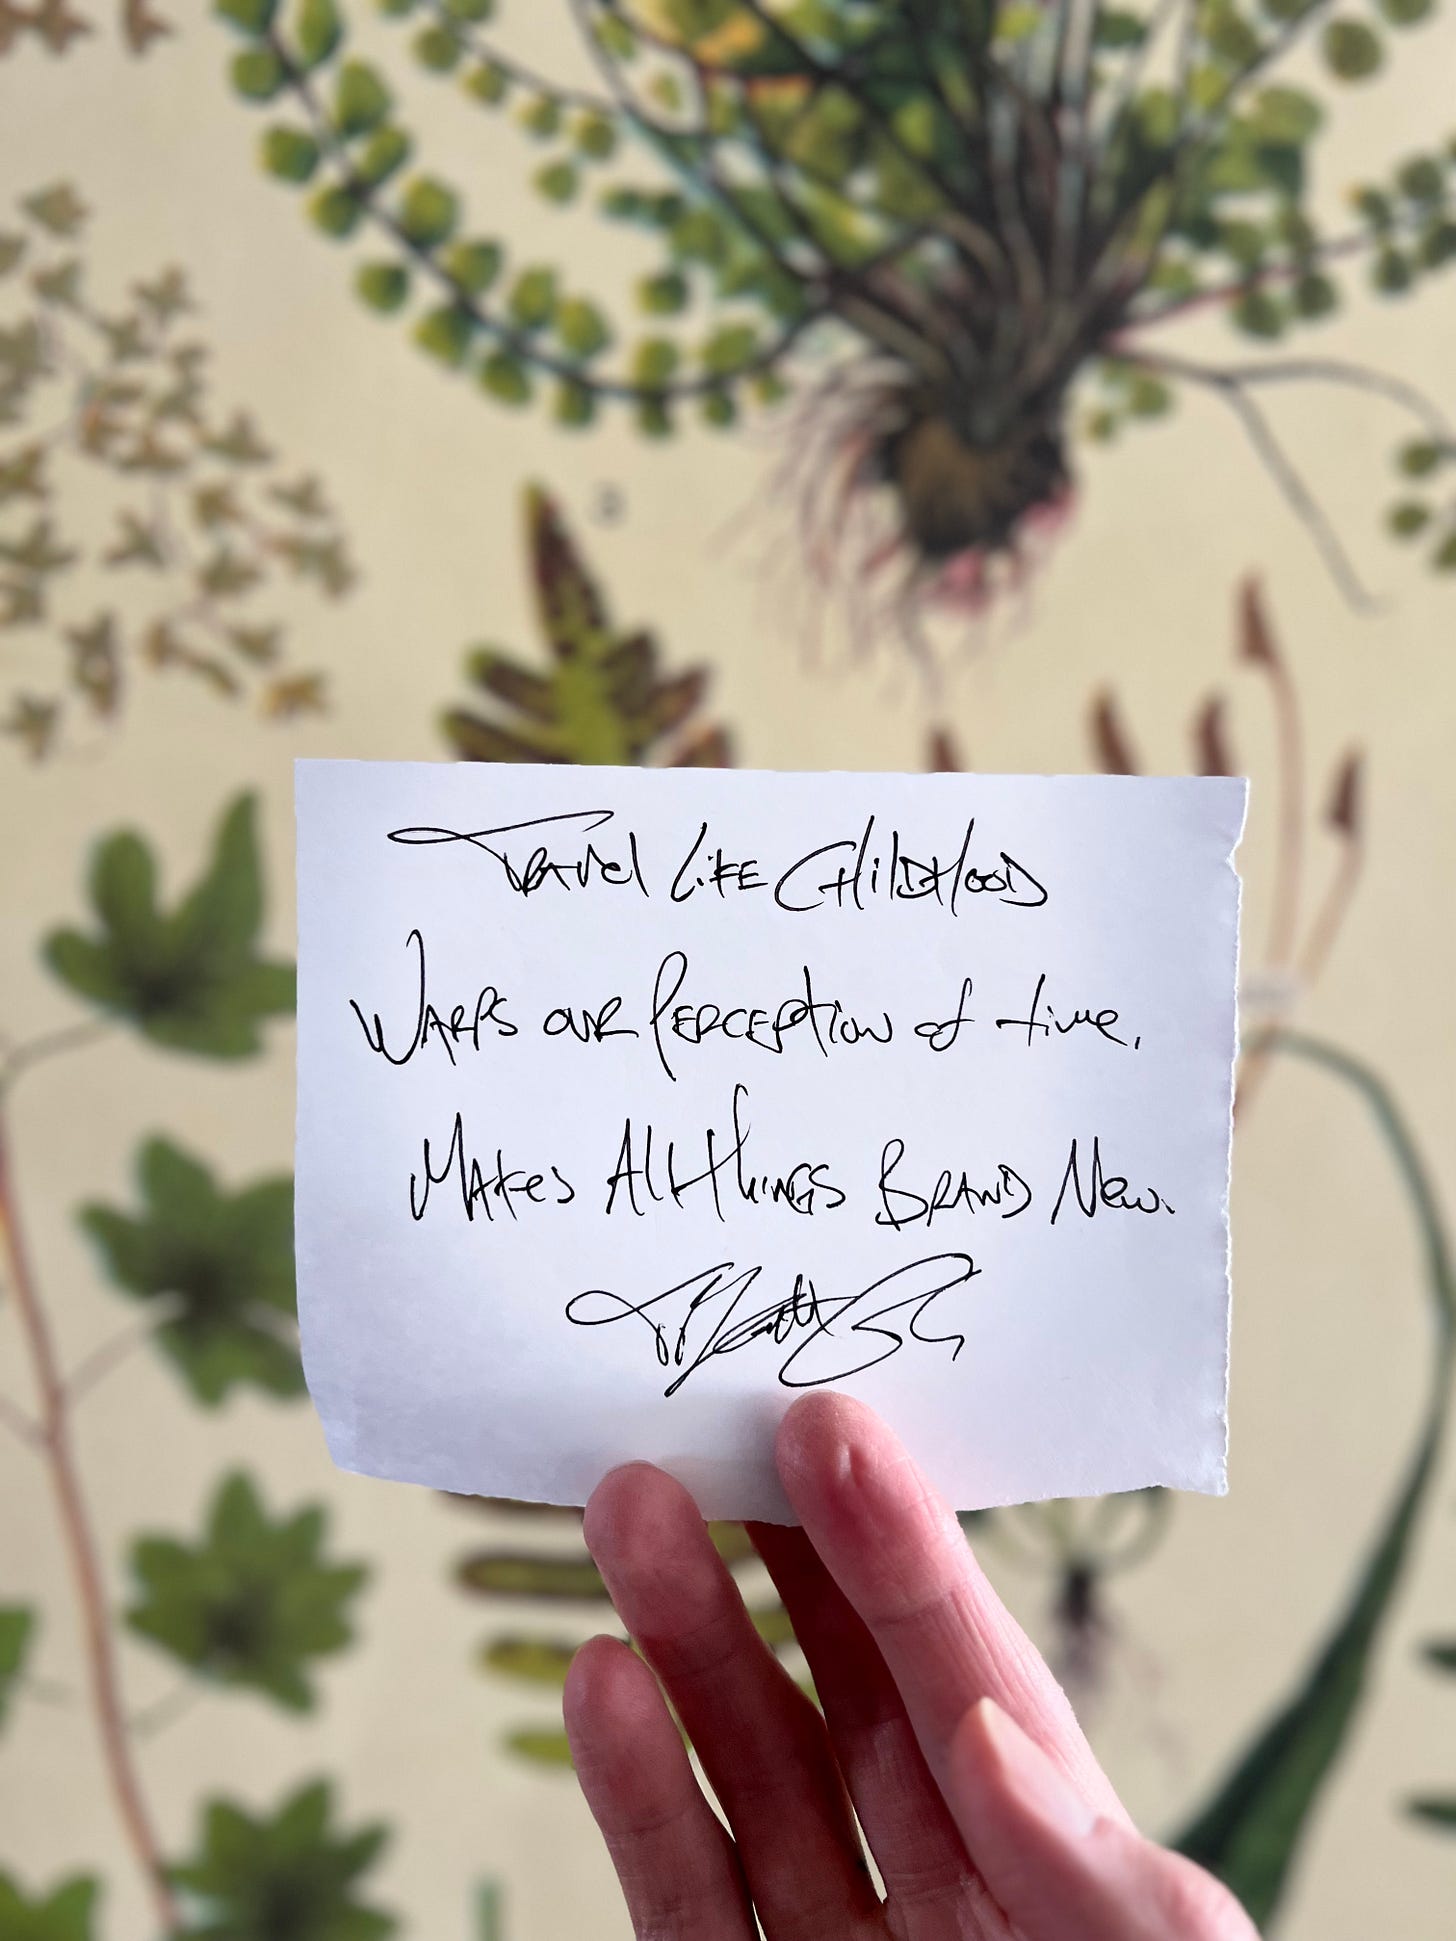 Travel Like Childhood
Warps our Perception of time.
Makes All things Brand New.